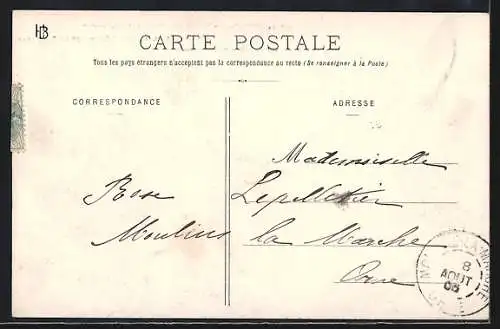 HB
CARTE POSTALE
Tous les pays étrangers n'acceptent pas la correspondance au recto (Se renseigner à la Poste)
CORRESPONDANCE
ADRESSE
Mademoiselle
Rose Lepelletier
Moulins la Marche
Orne
8
AOUT